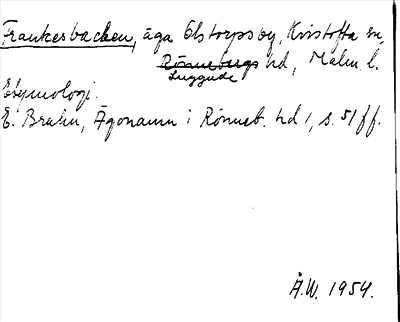 Frankesbacken, äga Olstorps by, Kvistofta sn,
Rönnebergs hd, Malm. l.
Luggude
Etymologi.
E. Bruhn, Ägonamn i Rönneb. hd 1, s. 51 ff.
Å.W. 1954.